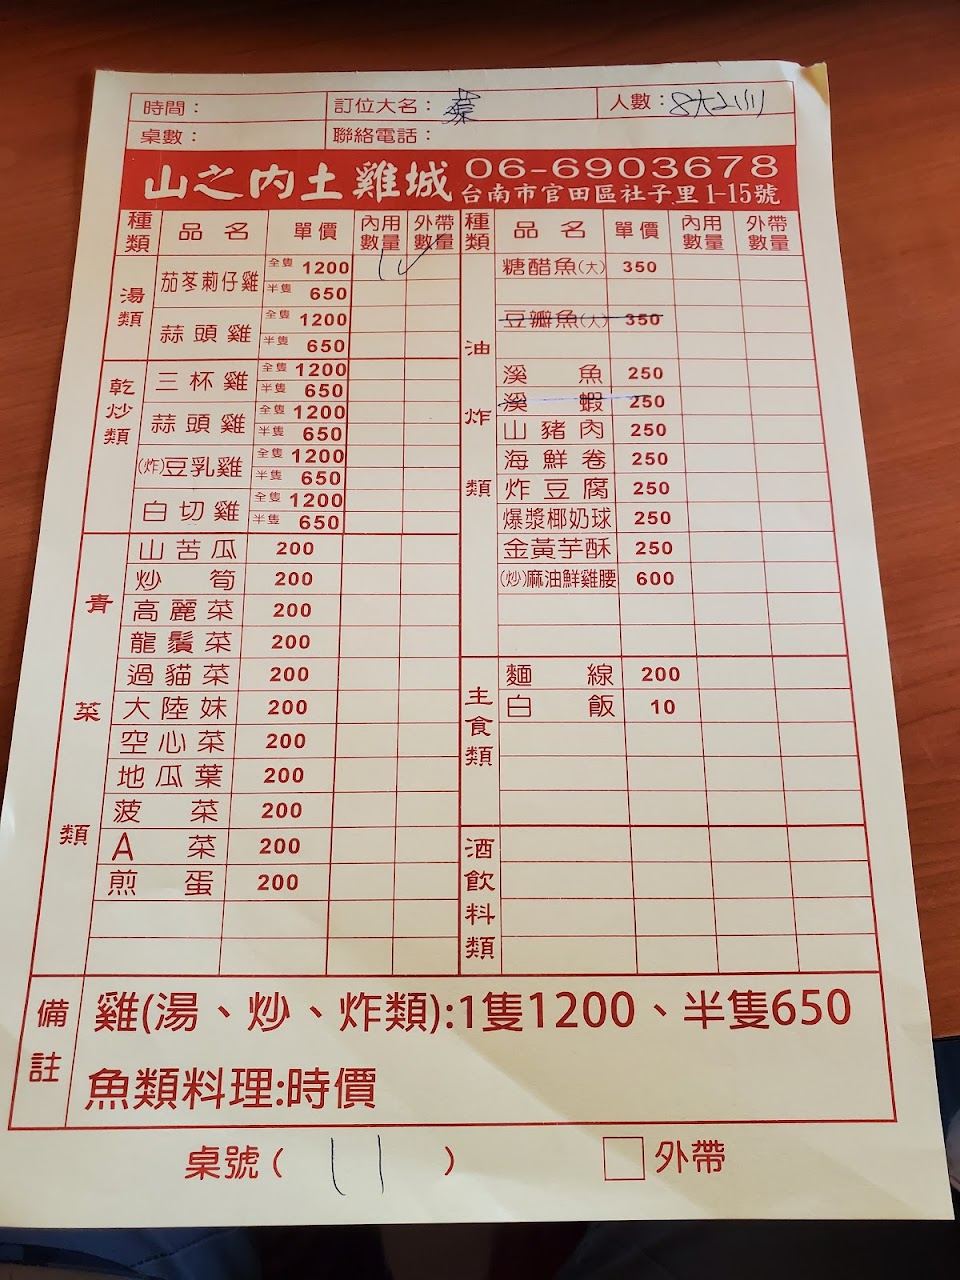 時間：
訂位大名：蔡
人數：8大2小
桌數：
聯絡電話：
山之內土雞城
06-6903678
台南市官田區社子里1-15號
種類 品名 單價 內用數量 外帶數量
湯類
茄苳莿仔雞 全隻 1200
半隻 650
蒜頭雞 全隻 1200
半隻 650
乾炒類
三杯雞 全隻 1200
半隻 650
蒜頭雞 全隻 1200
半隻 650
(炸)豆乳雞 全隻 1200
半隻 650
白切雞 全隻 1200
半隻 650
青菜類
山苦瓜 200
炒筍 200
高麗菜 200
龍鬚菜 200
過貓菜 200
大陸妹 200
空心菜 200
地瓜葉 200
菠菜 200
A菜 200
煎蛋 200
種類 品名 單價 內用數量 外帶數量
油炸類
糖醋魚(大) 350
豆瓣魚(大) 350
溪魚 250
溪蝦 250
山豬肉 250
海鮮卷 250
炸豆腐 250
爆漿椰奶球 250
金黃芋酥 250
(炒)麻油鮮雞腰 600
主食類
麵線 200
白飯 10
酒飲料類
備註
雞(湯、炒、炸類):1隻1200、半隻650
魚類料理:時價
桌號( 11 )
外帶